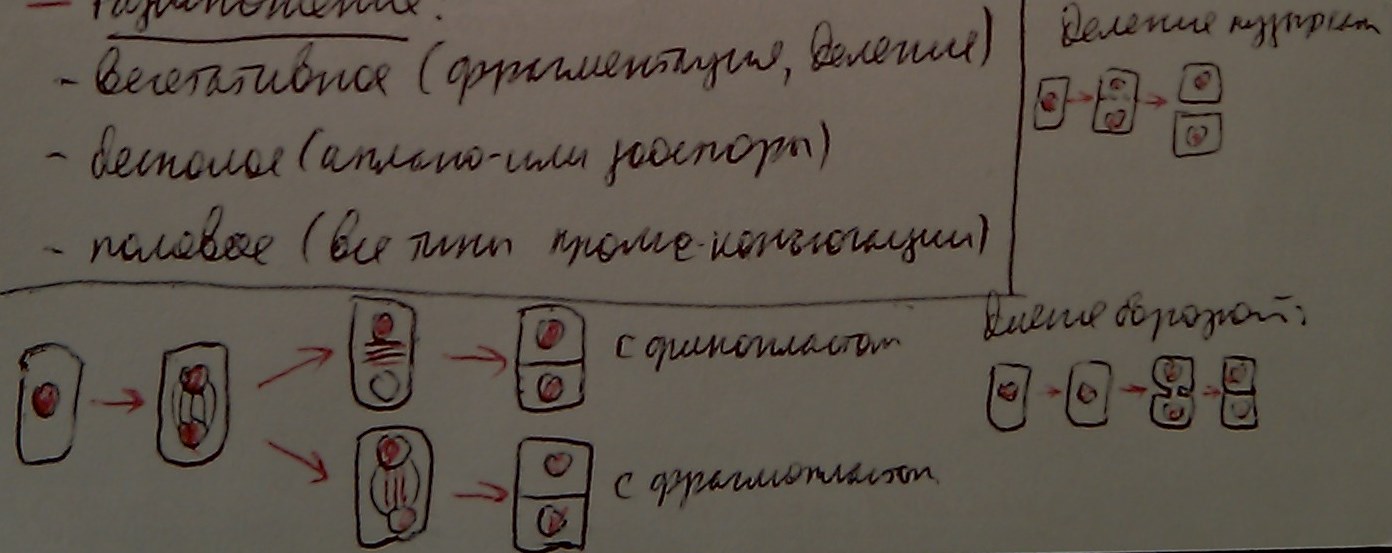 — Размножение:
- Вегетативное (фрагментация, деление)
- бесполое (аплано- или зооспоры)
- половое (все типы кроме конъюгации)
Деление пузырьками
с фикопластом
с фрагмопластом
Деление бороздой: